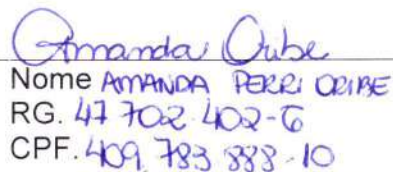 Amanda Oribe
Nome AMANDA PERRI ORIBE
RG. 47 702 402-6
CPF. 409 783 888-10